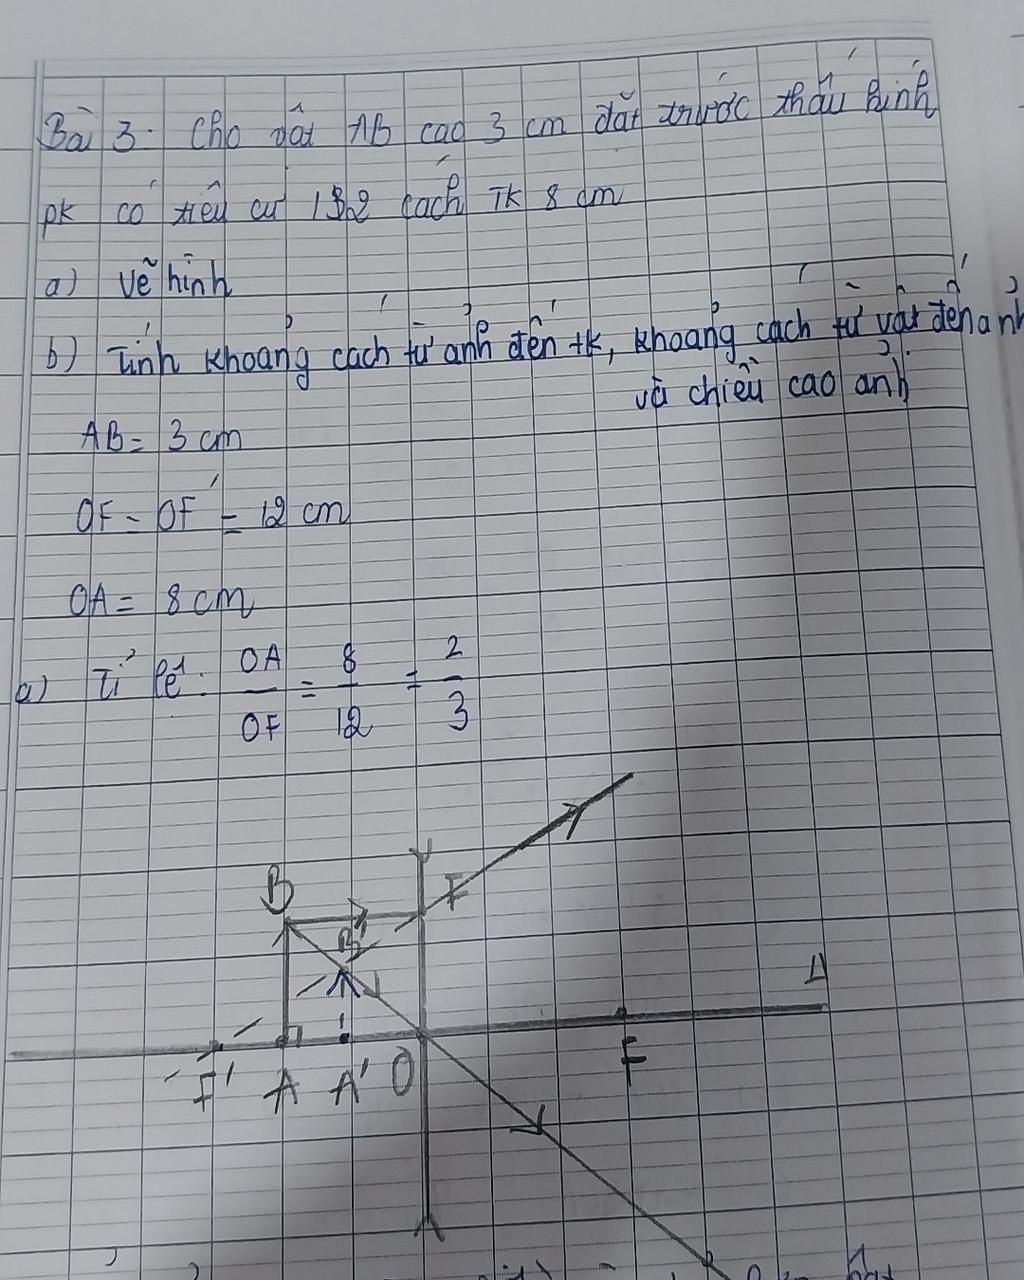 Bài 3. Cho vật AB cao 3 cm đặt trước thấu kính
pk có tiêu cự 12 cách TK 8 cm
a) Vẽ hình
b) Tính khoảng cách từ ảnh đến tk, khoảng cách từ vật đến ảnh
và chiều cao ảnh.
AB = 3 cm
OF = OF' = 12 cm
OA = 8 cm
a) Tỉ lệ: OA/OF = 8/12 = 2/3
I
B
B'
Δ
F' A A' O F